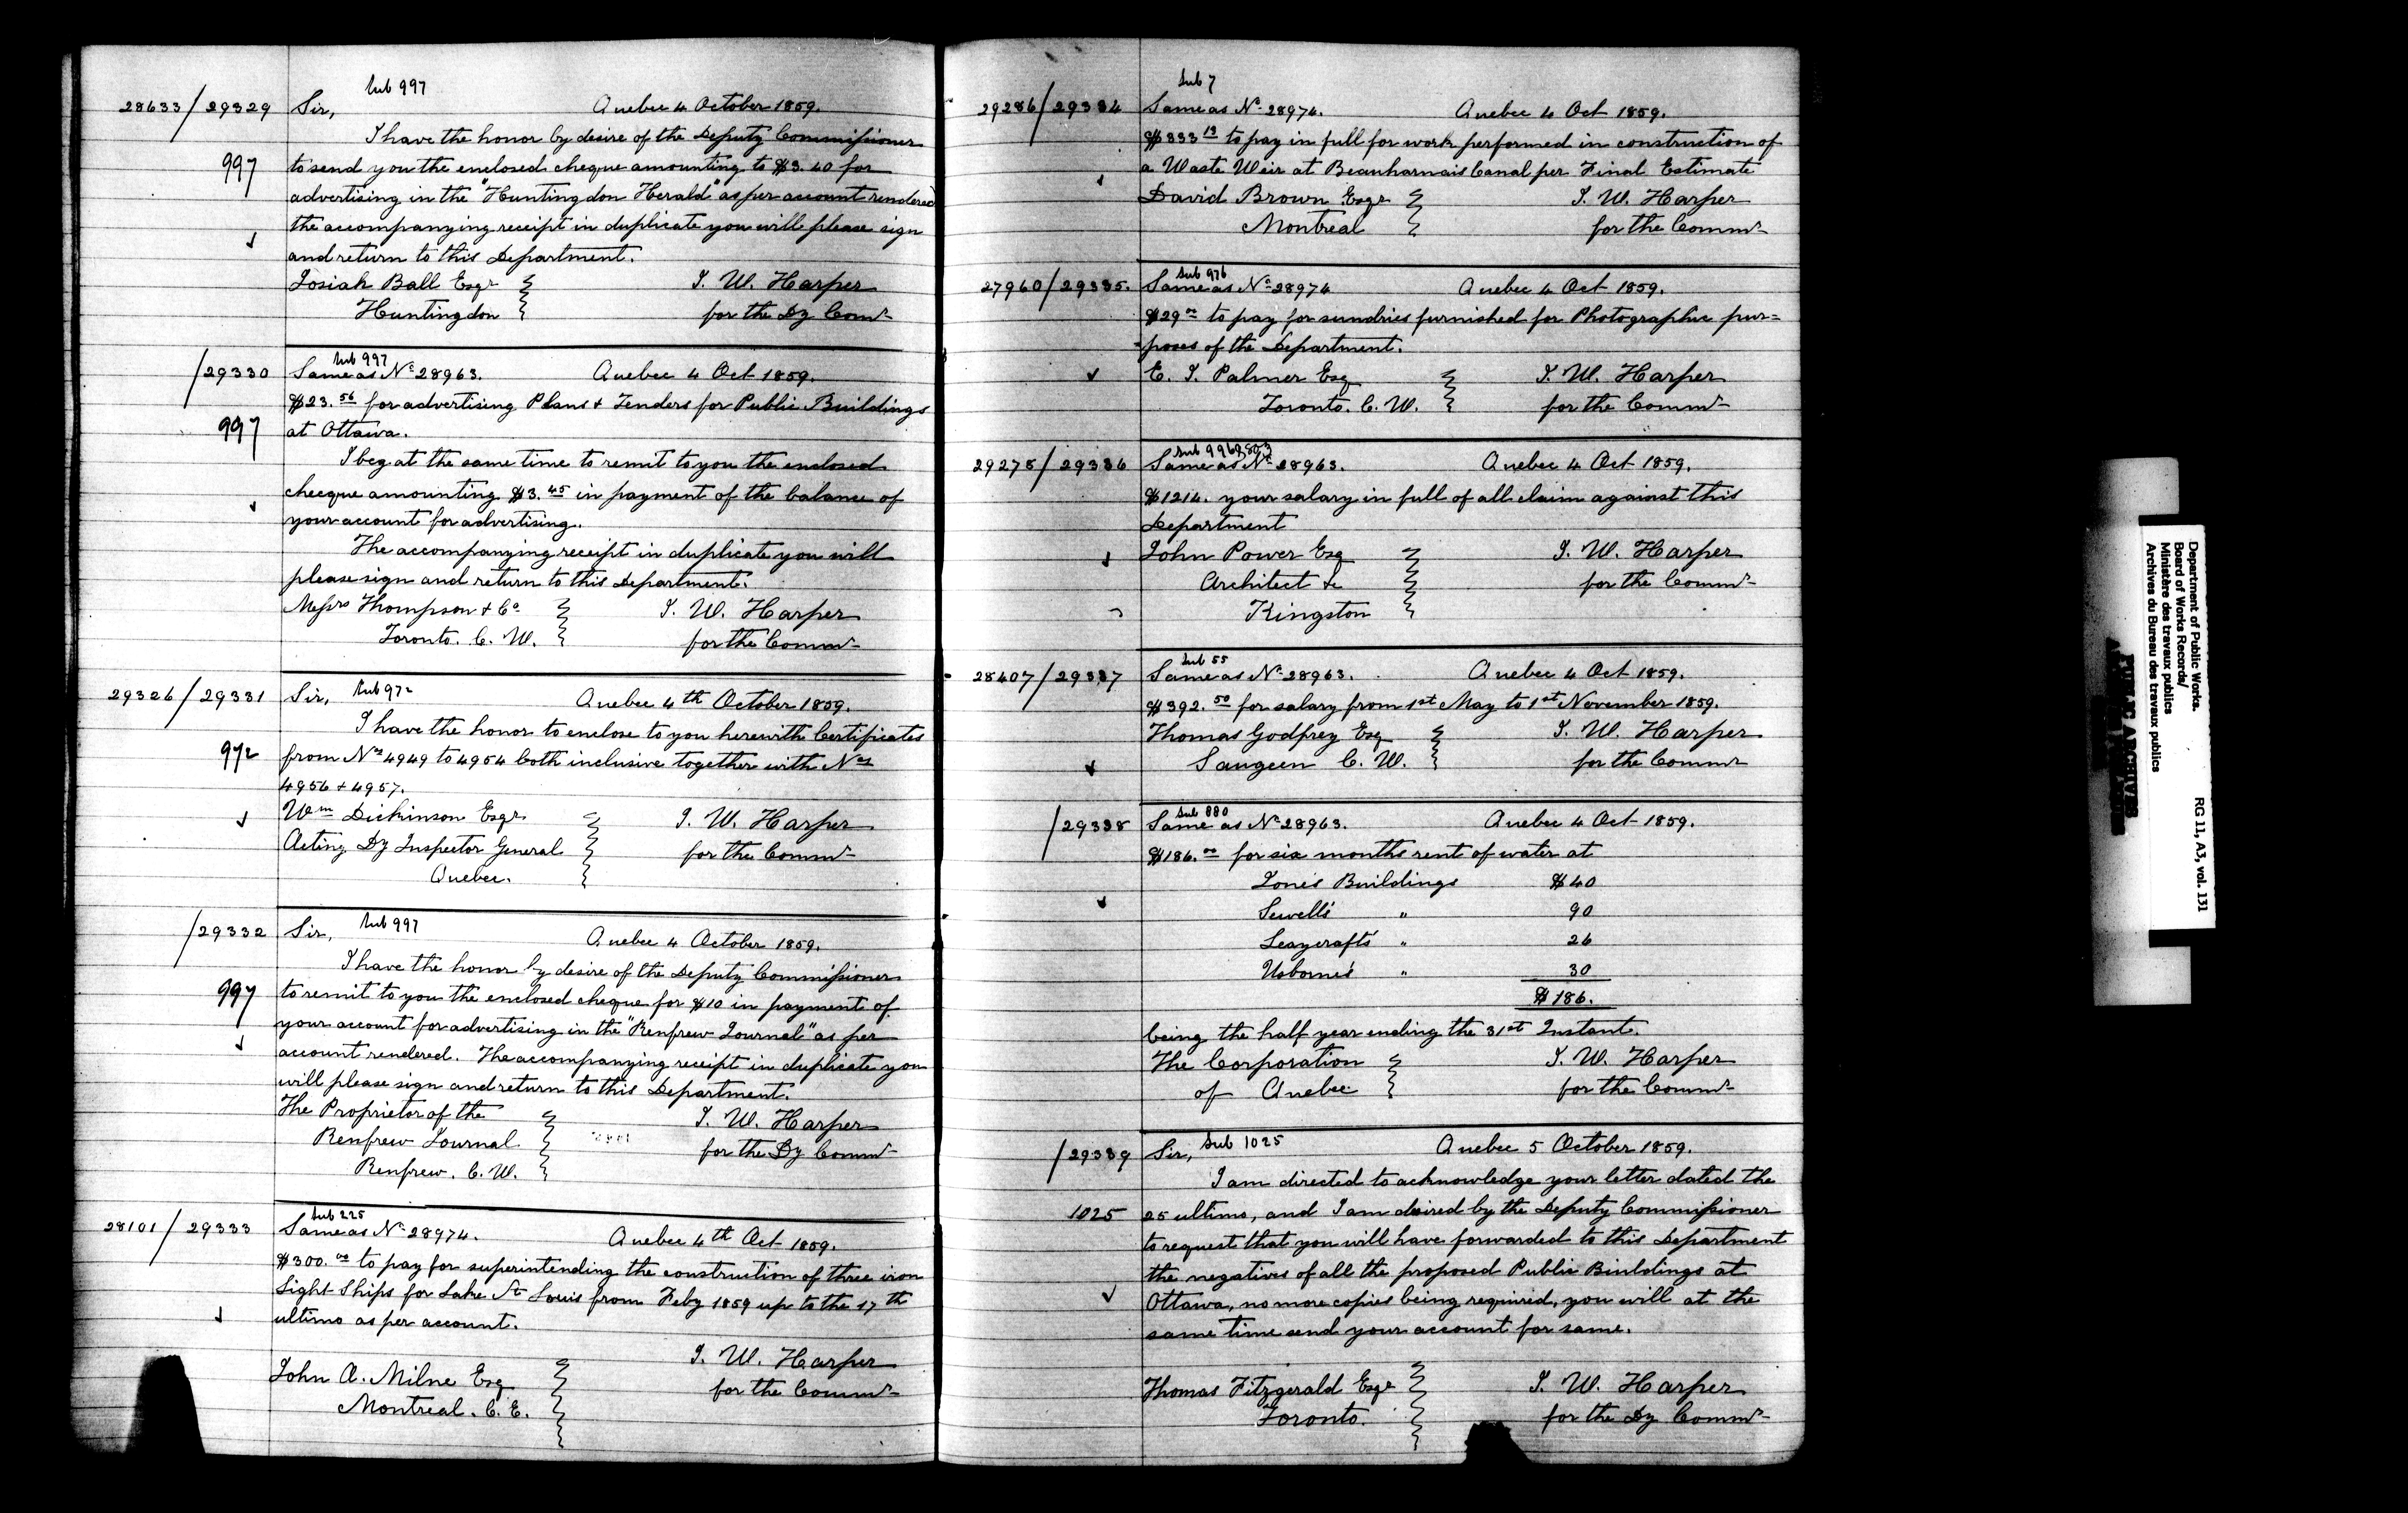 Sub 997
28633/29329 Sir, Quebec 4 October 1859.
I have the honor by desire of the Deputy Commissioner
997 to send you the enclosed cheque amounting to $3.40 for
advertising in the "Huntingdon Herald" as per account rendered
the accompanying receipt in duplicate you will please sign
and return to this Department.
Josiah Ball Esqr J. W. Harper
Huntingdon for the Dy Comr
Sub 997
/29330 Same as No 28963. Quebec 4 Oct 1859.
$23.56 for advertising Plans & Tenders for Public Buildings
997 at Ottawa.
I beg at the same time to remit to you the enclosed
checque amounting $3.45 in payment of the balance of
your account for advertising.
The accompanying receipt in duplicate you will
please sign and return to this Department.
Messrs Thompson & Co J. W. Harper
Toronto. C. W. for the Commr
29326/29331 Sir, Sub 972 Quebec 4th October 1859.
I have the honor to enclose to you herewith Certificates
972 from Nos 4949 to 4954 both inclusive together with Nos
4956 & 4957.
Wm Dickinson Esqr J. W. Harper
Acting Dy Inspector General for the Commr
Quebec.
/29332 Sir, Sub 997 Quebec 4 October 1859.
I have the honor by desire of the Deputy Commissioner
997 to remit to you the enclosed cheque for $10 in payment of
your account for advertising in the "Renfrew Journal" as per
account rendered. The accompanying receipt in duplicate you
will please sign and return to this Department.
The Proprietor of the J. W. Harper
Renfrew Journal for the Dy Commr
Renfrew. C. W.
Sub 225
28101/29333 Same as No 28974. Quebec 4th Oct 1859.
$300.00 to pay for superintending the construction of three iron
Light Ships for Lake St Louis from Feby 1859 up to the 17th
ultimo as per account.
J. W. Harper
John A. Milne Esq for the Commr
Montreal. C. E.
Sub 7
29286/29334 Same as No 28974. Quebec 4 Oct 1859.
$333 13 to pay in full for work performed in construction of
a Waste Weir at Beauharnois Canal per Final Estimate
David Brown Esqr J. W. Harper
Montreal for the Commr
Sub 976
27960/29335. Same as No 28974 Quebec 4 Oct 1859.
$29 00 to pay for sundries furnished for Photographic pur=
=poses of the Department.
E. J. Palmer Esq J. W. Harper
Toronto. C. W. for the Commr
Sub 996 & 803
29275/29336 Same as No 28963. Quebec 4 Oct 1859.
$1214. your salary in full of all claim against this
Department
John Power Esq J. W. Harper
Architect &c for the Commr
Kingston
Sub 55
28407/29337 Same as No 28963. Quebec 4 Oct 1859.
$392.50 for salary from 1st May to 1st November 1859.
Thomas Godfrey Esq J. W. Harper
Saugeen C. W. for the Commr
Sub 880
/29338 Same as No 28963. Quebec 4 Oct 1859.
$186.00 for six months rent of water at
Jones Buildings $40
Sewell's " 90
Leaycraft's " 26
Usborne's " 30
$186.
being the half year ending the 31st Instant.
The Corporation J. W. Harper
of Quebec for the Commr
/29339 Sir, Sub 1025 Quebec 5 October 1859.
I am directed to acknowledge your letter dated the
1025 25 ultimo, and I am desired by the Deputy Commissioner
to request that you will have forwarded to this Department
the negatives of all the proposed Public Buildings at
Ottawa, no more copies being required, you will at the
same time send your account for same.
Thomas Fitzgerald Esqr J. W. Harper
Toronto. for the Dy Commr
Department of Public Works.
Board of Works Records/
Ministère des travaux publics
Archives du Bureau des travaux publics
RG 11, A3, vol. 131
PUBLIC ARCHIVES